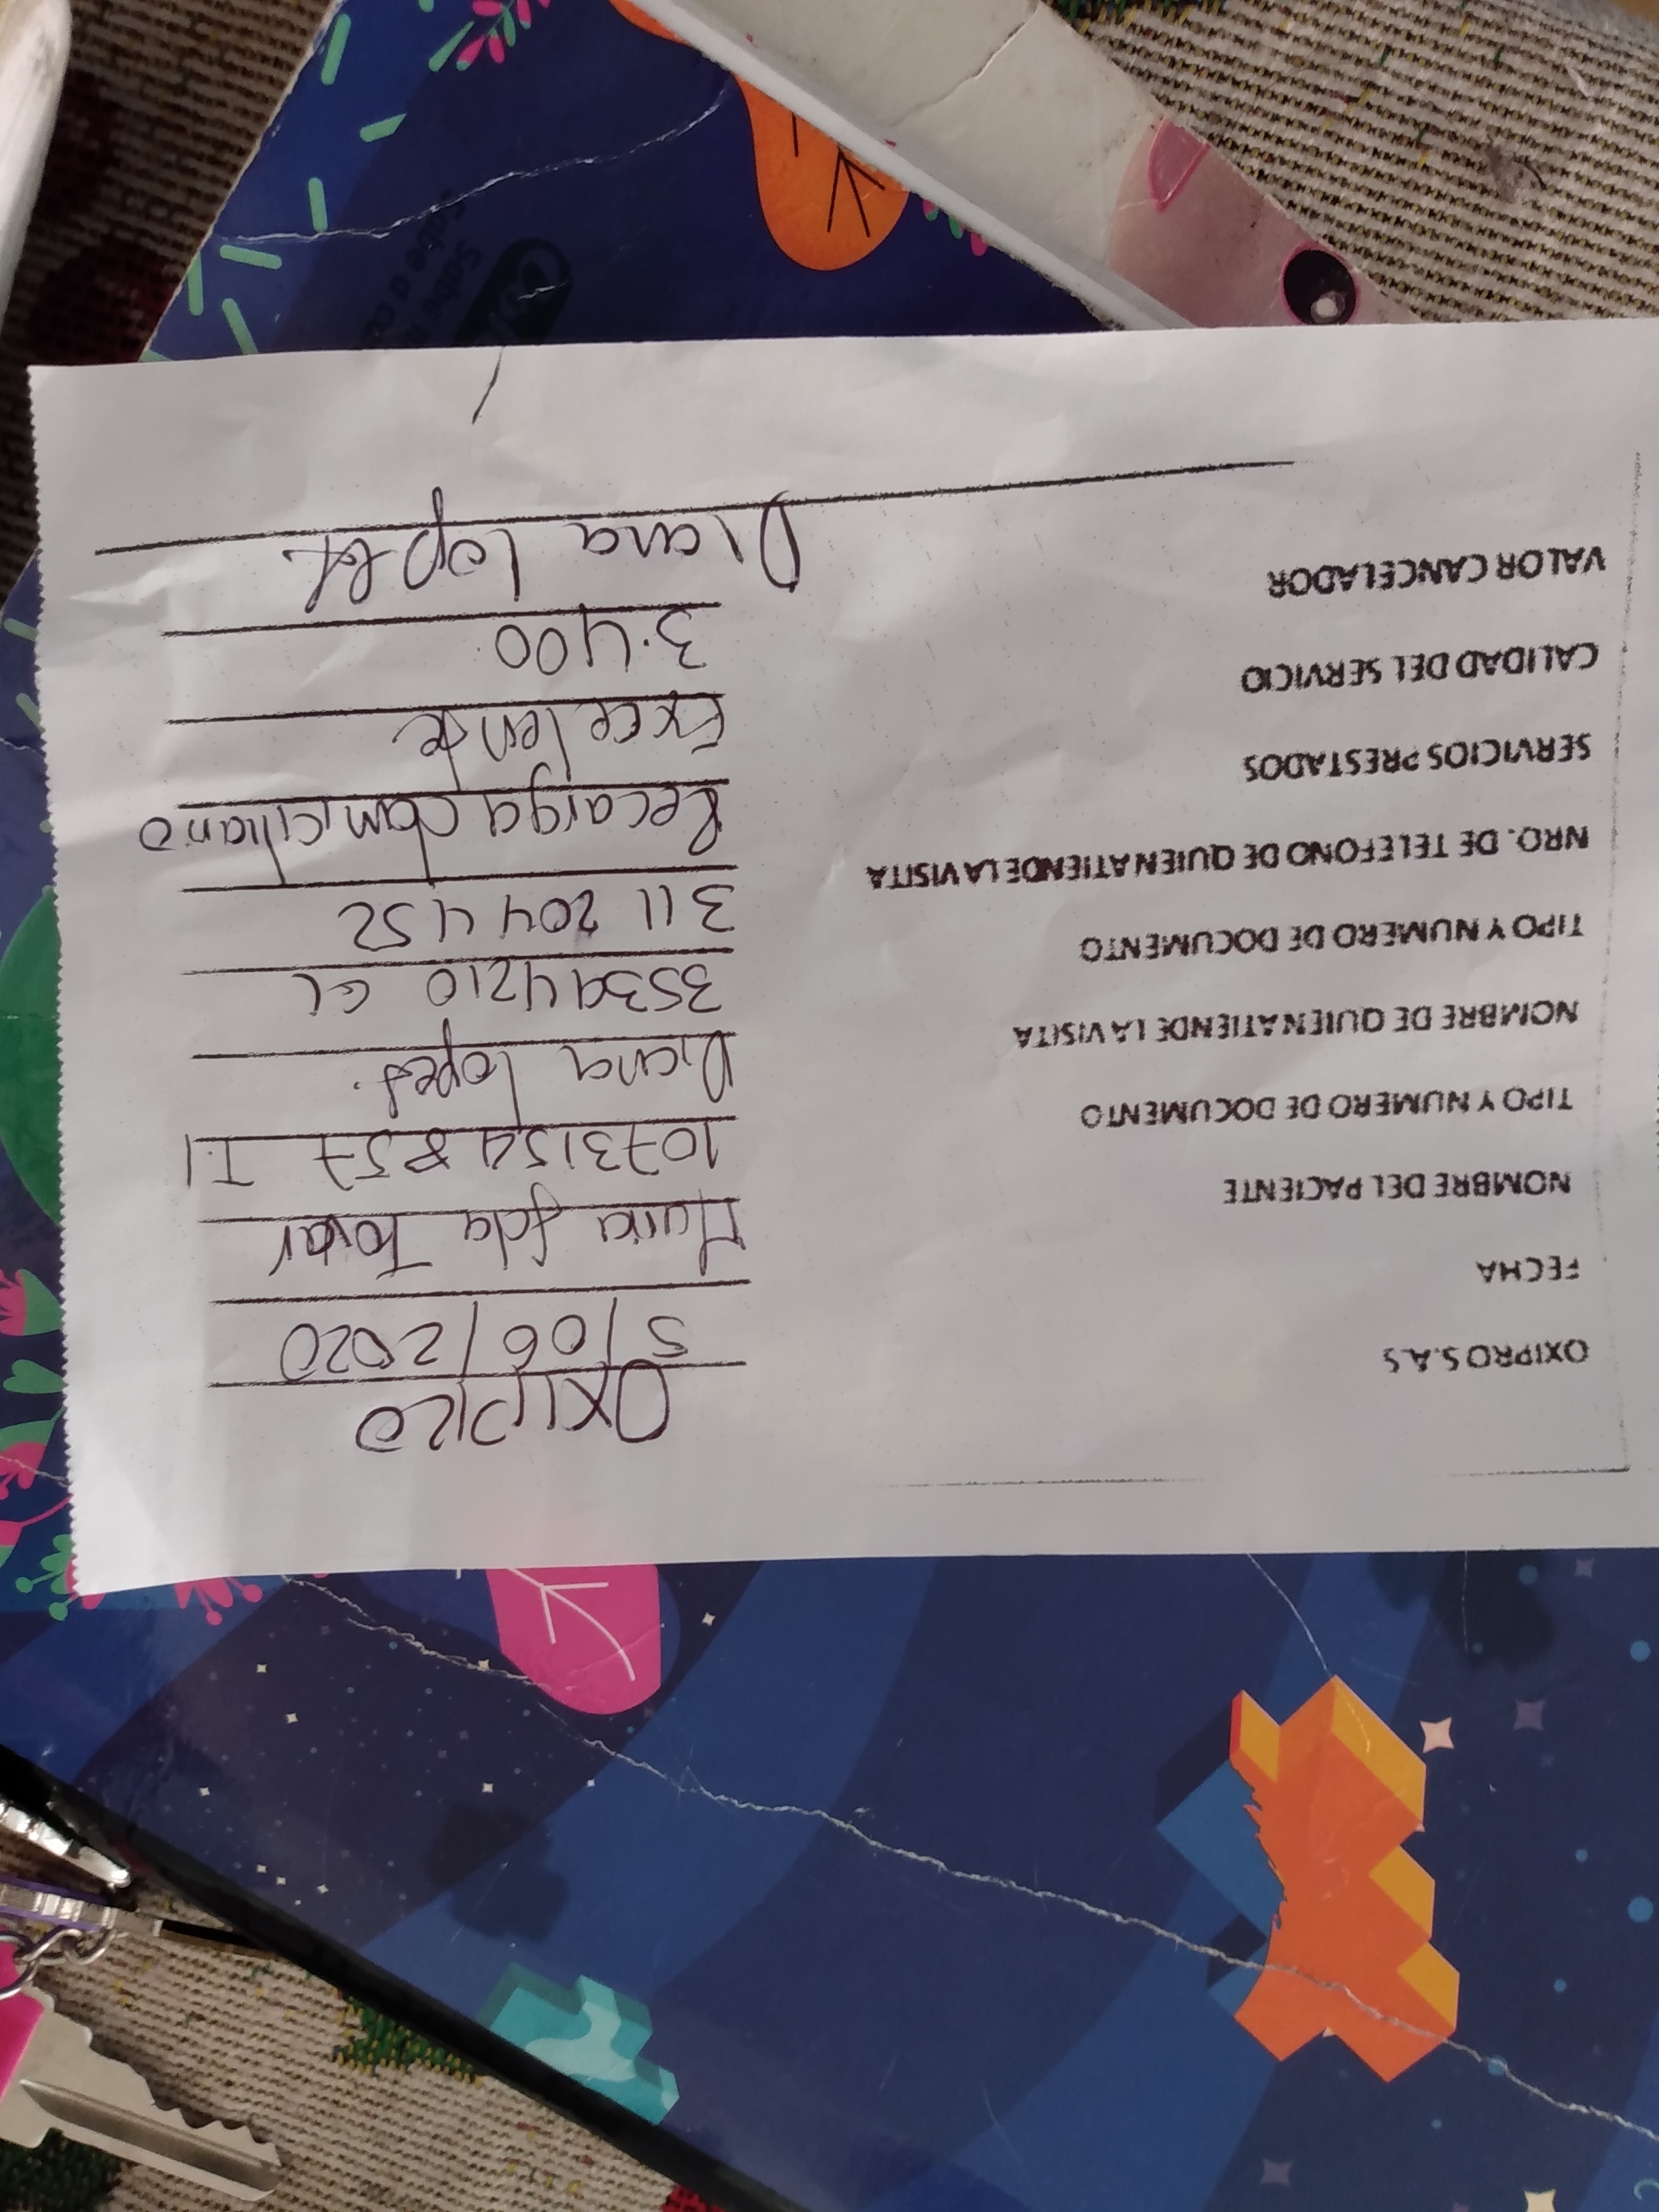 OXIPRO S.A.S OXIPRO
FECHA 5/06/2020
NOMBRE DEL PACIENTE Maria Tovar
TIPO Y NUMERO DE DOCUMENTO T.I
NOMBRE DE QUIEN ATIENDE LA VISITA Diana Lopez.
TIPO Y NUMERO DE DOCUMENTO
NRO. DE TELEFONO DE QUIEN ATIENDE LA VISITA 311 204 4 452
SERVICIOS PRESTADOS Recarga domiciliario
CALIDAD DEL SERVICIO Excelente
VALOR CANCELADOR 3.400
Diana Lopez